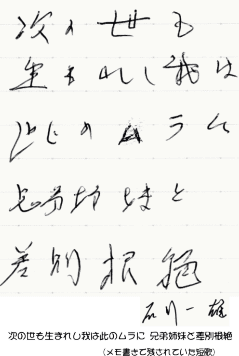 次の世も
生まれし我は
此のムラに
兄弟姉妹と
差別根絶
石川一雄
次の世も生きれし我は此のムラに 兄弟姉妹と差別根絶
（メモ書きで残されていた短歌）